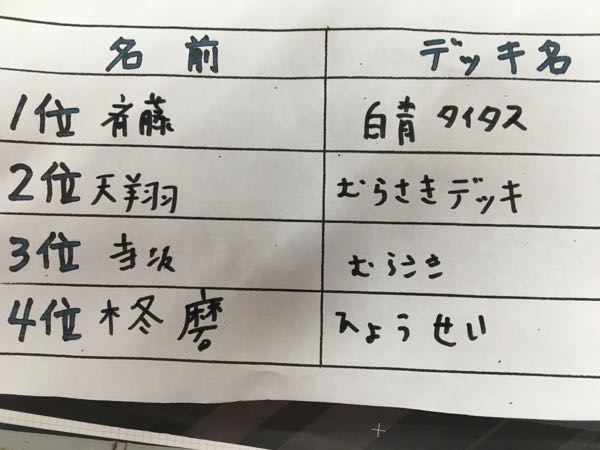 名前 デッキ名
1位 斉藤 白青 タイタス
2位 天翔 むらさきデッキ
3位 寺坂 むらさき
4位 柊磨 ひょうせい